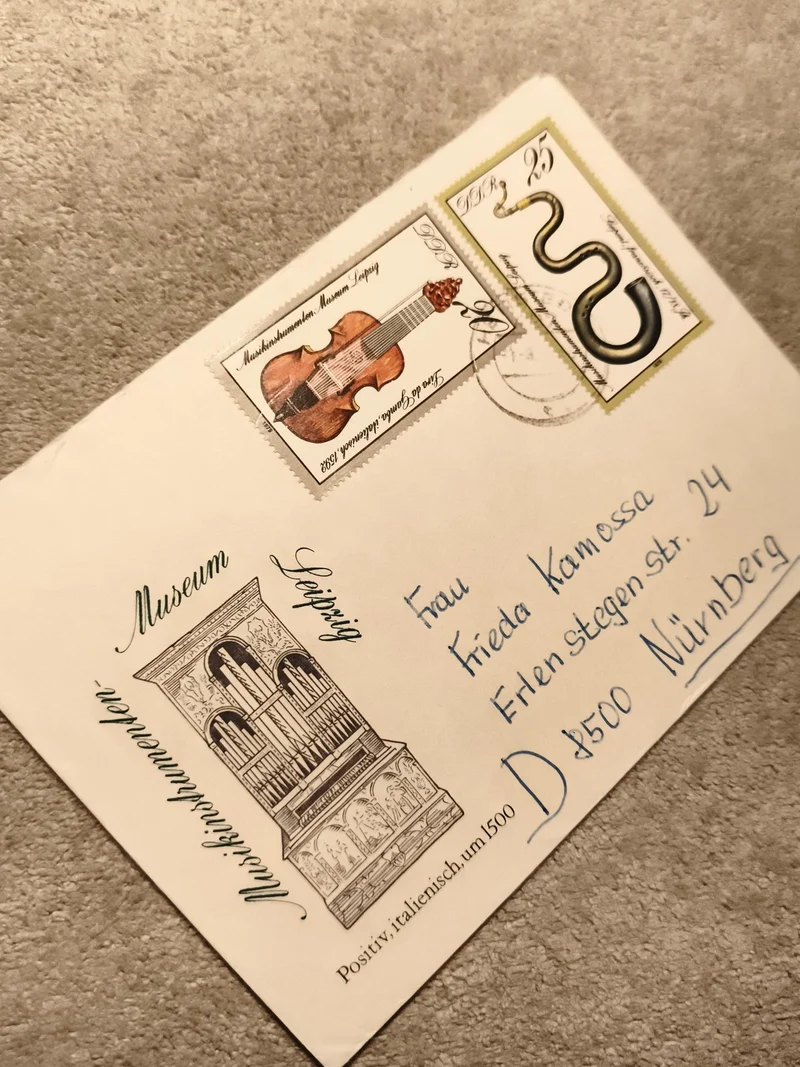 DDR
25
Musikinstrumenten-Museum Leipzig
DDR
20
Musikinstrumenten-Museum Leipzig
Lira da Gamba, italienisch, 1592
Frau
Frieda Kamossa
Erlenstegenstr. 24
D 8500 Nürnberg
Musikinstrumenten-
Museum
Leipzig
Positiv, italienisch, um 1500